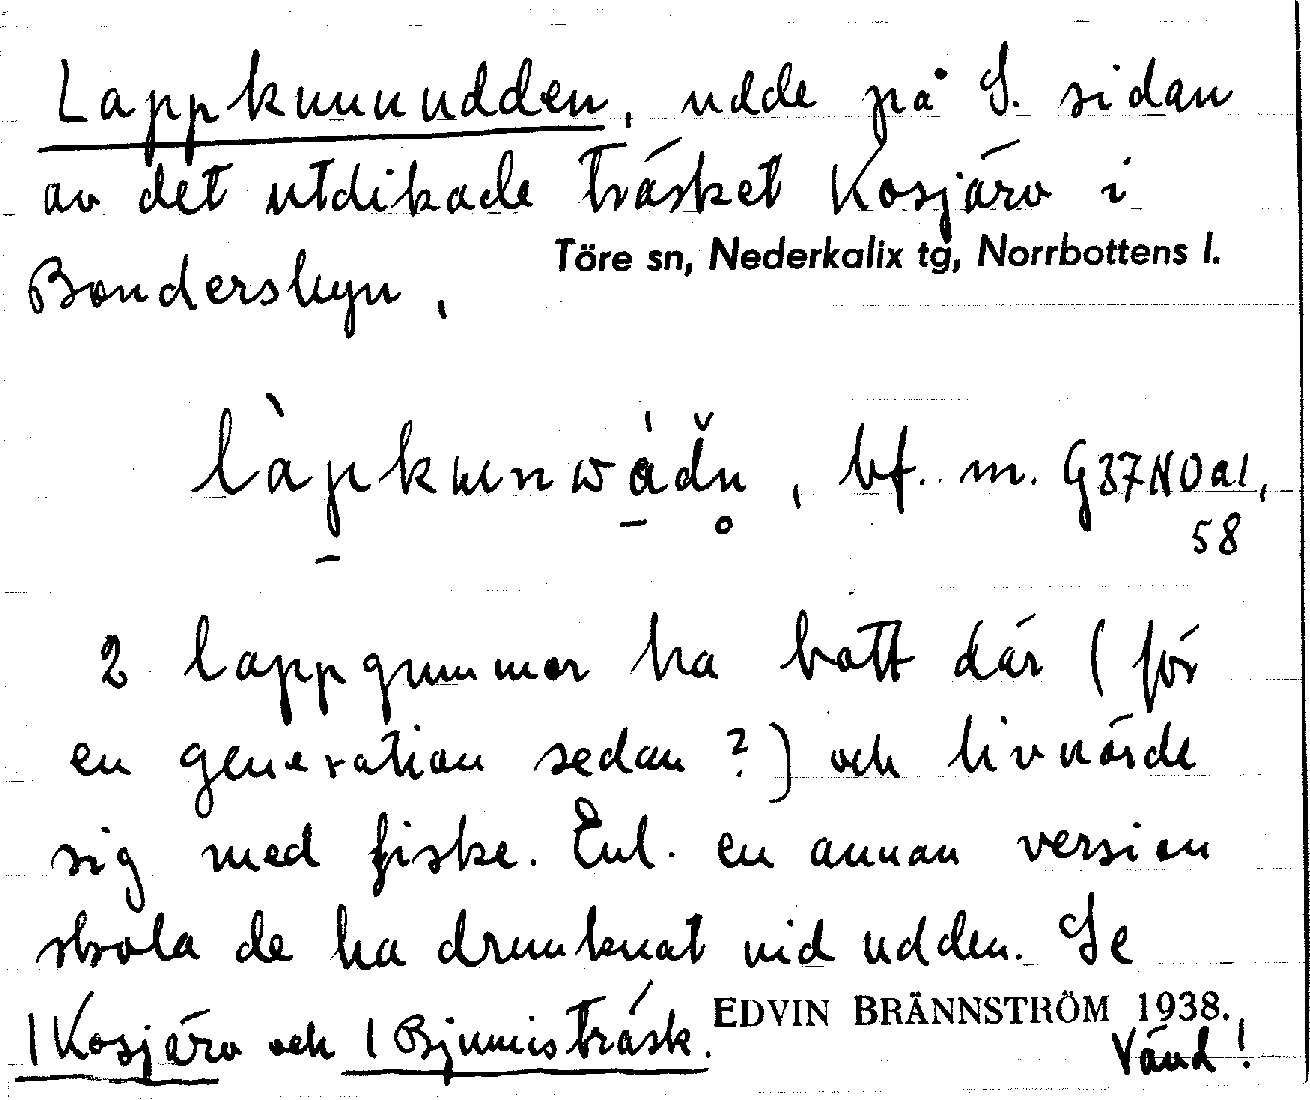 Lappkunudden, udde på S. sidan
av det utdikade träsket Kosjärv i
Töre sn, Nederkalix tg, Norrbottens l.
Bondersbyn.
làpkunwádn̥, bf. m. G37NOa1,
58
2 lappgummor ha bott där (för
en generation sedan?) och livnärde
sig med fiske. Enl. en annan version
skola de ha drunknat vid udden. Se
1 Kosjärv och 1 Bjumisträsk.
EDVIN BRÄNNSTRÖM 1938.
Vänd!